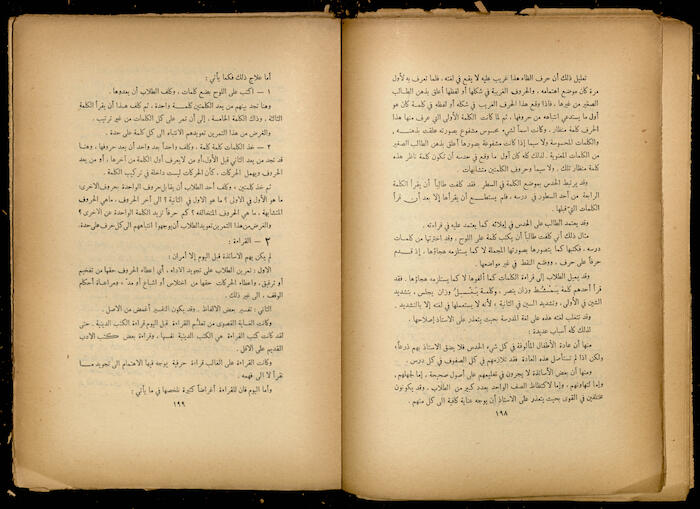 تعليل ذلك أن حرف الظاء هذا غريب عليه لا يقع في لغته ، فلما تعرف به لأول
مرة كان موضع اهتمامه . والحروف الغريبة في شكلها أو لفظها أعلق بذهن الطالب
الصغير من غيرها . فاذا وقع هذا الحرف الغريب في شكله أو لفظه في كلمة كان هو
أول ما يستدعي انتباهه من حروفها . ثم لما كانت الكلمة الأولى التي عرف منها هذا
الحرف كلمة منظار ، وكانت اسماً لشيء محسوس مشفوع بصورته علقت بذهنه ،
والكلمات المحسوسة ولا سيما إذا كانت مشفوعة بصورها أعلق بذهن الطالب الصغير
من الكلمات المعنوية . لذلك كله كان أول ما وقع في حدسه أن تكون كلمة ناظر هذه
كلمة منظار تلك . ولا سيما وحروف الكلمتين متشابهات .
وقد يرتبط الحدس بموضع الكلمة في السطر . فقد كلفت طالباً أن يقرأ الكلمة
الرابعة من أحد السطور في درسه . فلم يستطع أن يقرأها إلا بعد أن قرأ
الكلمات التي قبلها .
وقد يعتمد الطالب على الحدس في إملائه كما يعتمد عليه في قراءته .
مثال ذلك أني كلفت طالباً أن يكتب كلمة على اللوح . وقد اخترتها من كلمات
درسه . فكتبها كما يتصورها بصورتها المجملة لا كما يستلزمه هجاؤها . إذ قدم
حرفاً على حرف . ووضع النقط في غير مواضعها .
وقد يميل الطلاب إلى قراءة الكلمات كما ألفوها لا كما يستلزمه هجاؤها . فقد
قرأ أحدهم كلمة وزان ينصر ، وكلمة وزان يجلس ، بتشديد
الشين في الأولى ، وتشديد السين في الثانية ، لأنه لا يستعملها في لغته إلا بالتشديد .
وقد تتغلب لغته هذه على لغة المدرسة بحيث يتعذر على الاستاذ إصلاحها .
لذلك كله أسباب عديدة :
منها أن عادة الأطفال المألوفة في كل شيء الحدس فلا يضيق الاستاذ بهم ذرعاً .
ولكن اذا لم تستأصل هذه العادة . فقد تلازمهم في كل الصفوف في كل درس .
ومنها أن بعض الأساتذة لا يجرون في تعليمهم على أصول صحيحة ، إما لجهلهم ،
وإما لتهاونهم ، وإما لاكتظاظ الصف الواحد بعدد كبير من الطلاب . وقد يكونون
مختلفين في القوى بحيث يتعذر على الاستاذ أن يوجه عناية كافية الى كل منهم .
١٩٨
أما علاج ذلك فكما يأتي :
١ — اكتب على اللوح بضع كلمات ، وكلف الطلاب أن يعدوها .
وهنا تجد بينهم من يعد الكلمتين كلمة واحدة ، ثم كلف هذا أن يقرأ الكلمة
الثالثة ، وذلك الكلمة الخامسة . إلى أن تمر على كل الكلمات من غير ترتيب .
والغرض من هذا التمرين تعويدهم الانتباه الى كل كلمة على حدة .
٢ — خذ الكلمات كلمة كلمة . وكلف واحداً بعد واحد أن يعد حروفها ، وهنا
قد تجد من يعد الثاني قبل الأول، أو من لا يعرف أول الكلمة من آخرها ، أو من يعد
الحروف ويهمل الحركات . كأن الحركات ليست داخلة في تركيب الكلمة .
ثم خذ كلمتين ، وكلف أحد الطلاب أن يقابل حروف الواحدة بحروف الاخرى:
ما هو الأول في الاول ؟ ما هو الاول في الثانية ؟ الى آخر الحروف . ما هي الحروف
المتشابهة . ما هي الحروف المتخالفة ؟ كم حرفاً تزيد الكلمة الواحدة عن الاخرى ؟
والغرض من هذا التمرين تعويد الطلاب أن يوجهوا انتباههم الى كل حرف على حدة.
٢ — القراءة :
لم يكن يهم الاساتذة قبل اليوم إلا أمران :
الاول : تمرين الطلاب على تجويد الاداء . أي اعطاء الحروف حقها من تفخيم
أو ترقيق . واعطاء الحركات حقها من اختلاس أو اشباع أو مد . ومراعاة أحكام
الوقف . الى غير ذلك .
الثاني : تفسير بعض الالفاظ . وقد يكون التفسير أغمض من الاصل .
وكانت الغاية القصوى من تعلّم القراءة قبل اليوم قراءة الكتب الدينية . حتى
لقد كانت كتب القراءة هي الكتب الدينية نفسها . وقراءة بعض كتب الادب
القديم على الاقل .
وكانت القراءة على الغالب قراءة حرفية يوجه فيها الاهتمام الى تجويد ما
تقرأ لا الى فهمه .
وأما اليوم فان للقراءة أغراضاً كثيرة نلخصها في ما يأتي :
١٩٩